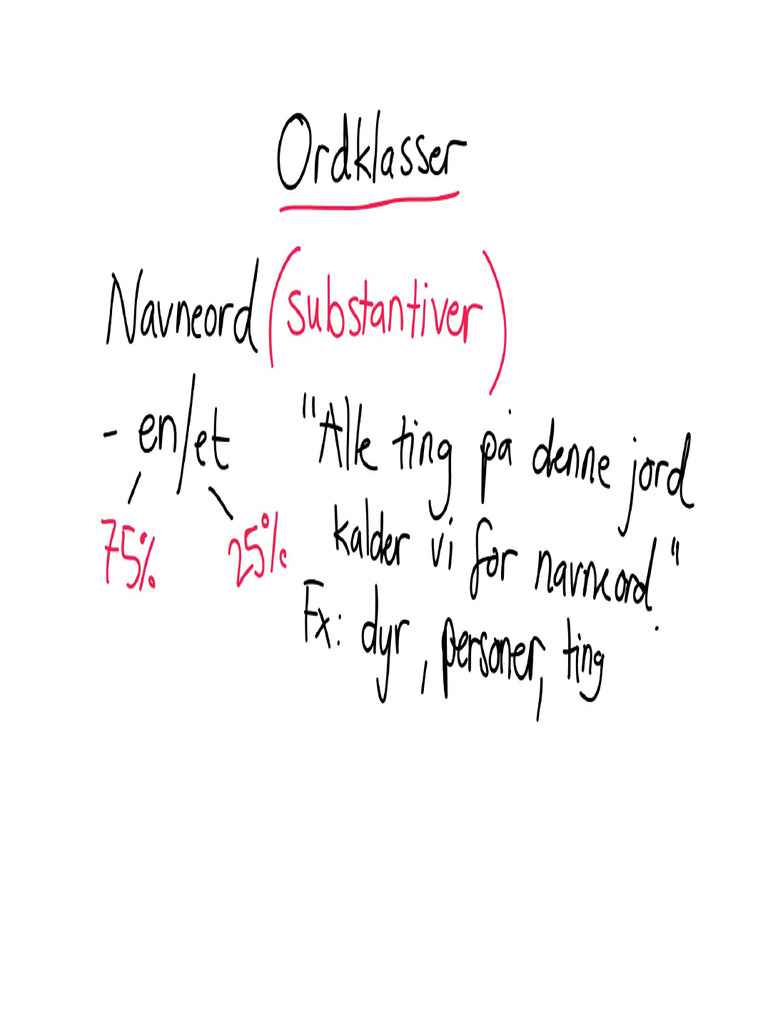 Ordklasser
Navneord (substantiver)
- en/et
75% 25%
"Alle ting på denne jord
kalder vi for navneord."
Fx: dyr, personer, ting